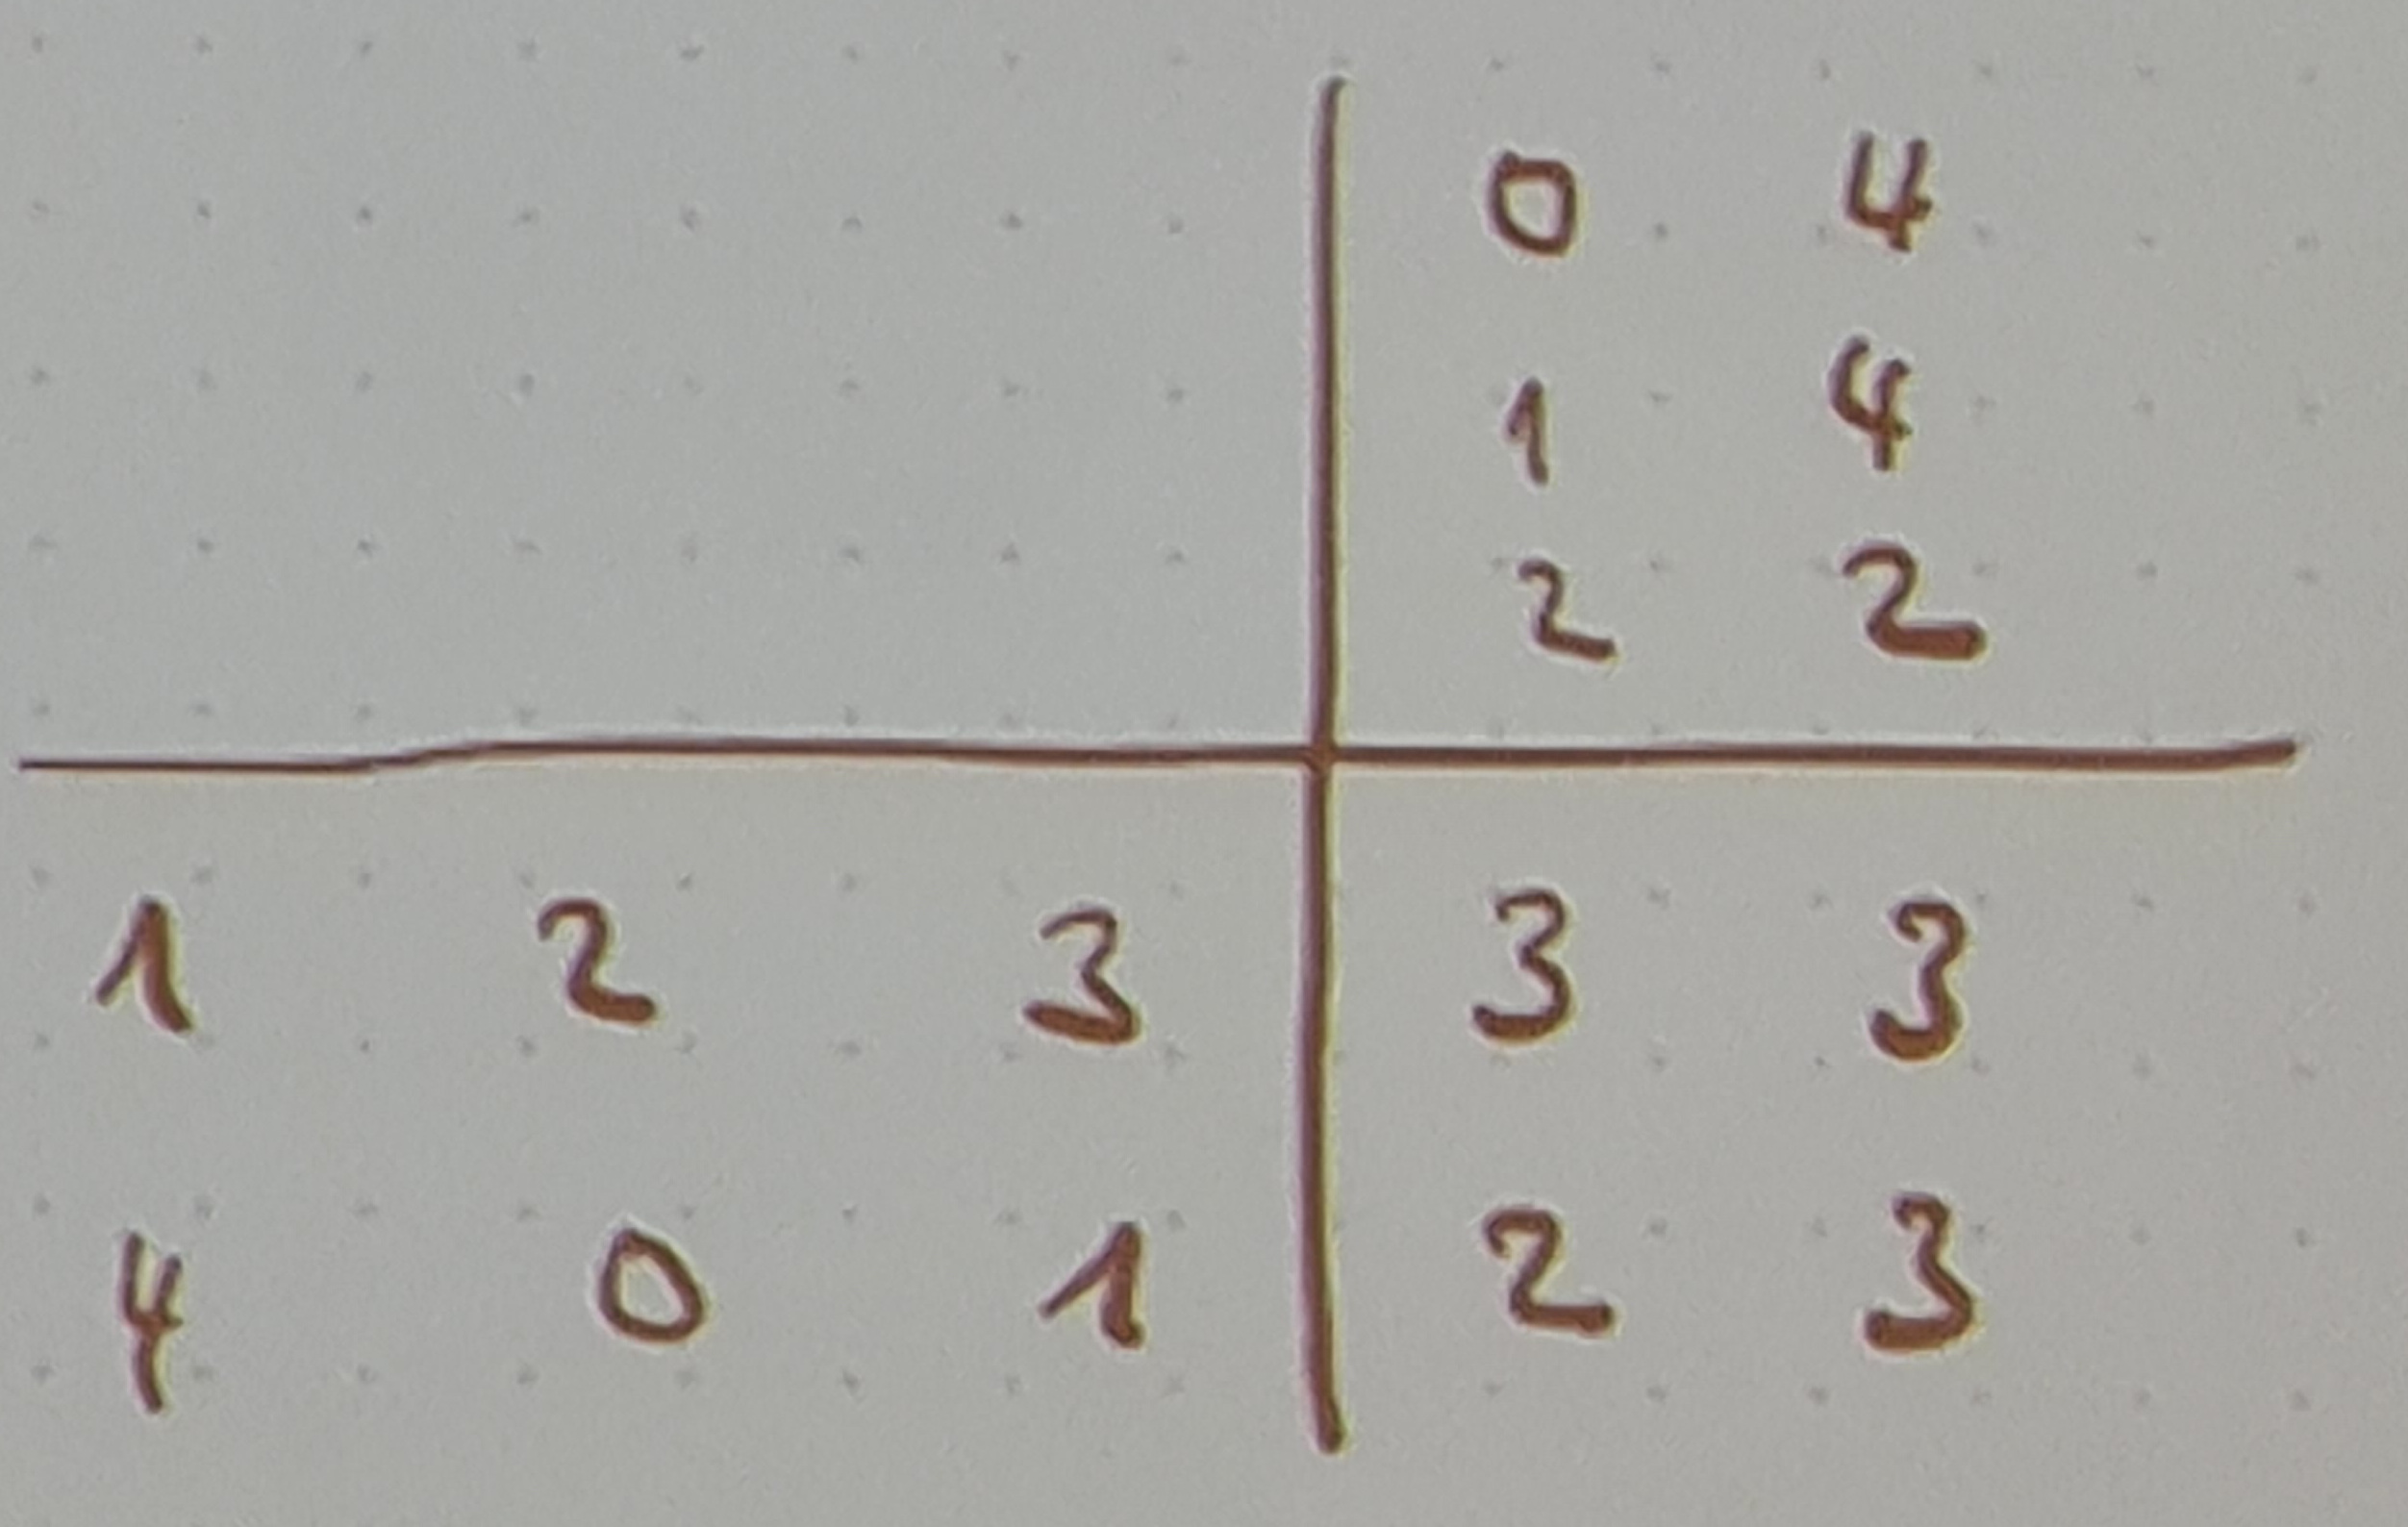 0 4
1 4
2 2
1 2 3 3 3
4 0 1 2 3